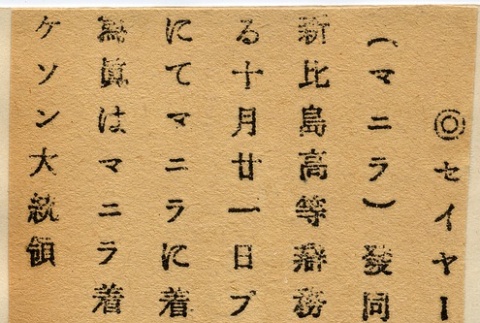 ◎セイヤー
(マニラ)發同
新比島高等辯務
る十月廿一日プ
にてマニラに着
寫眞はマニラ着
ケソン大統領